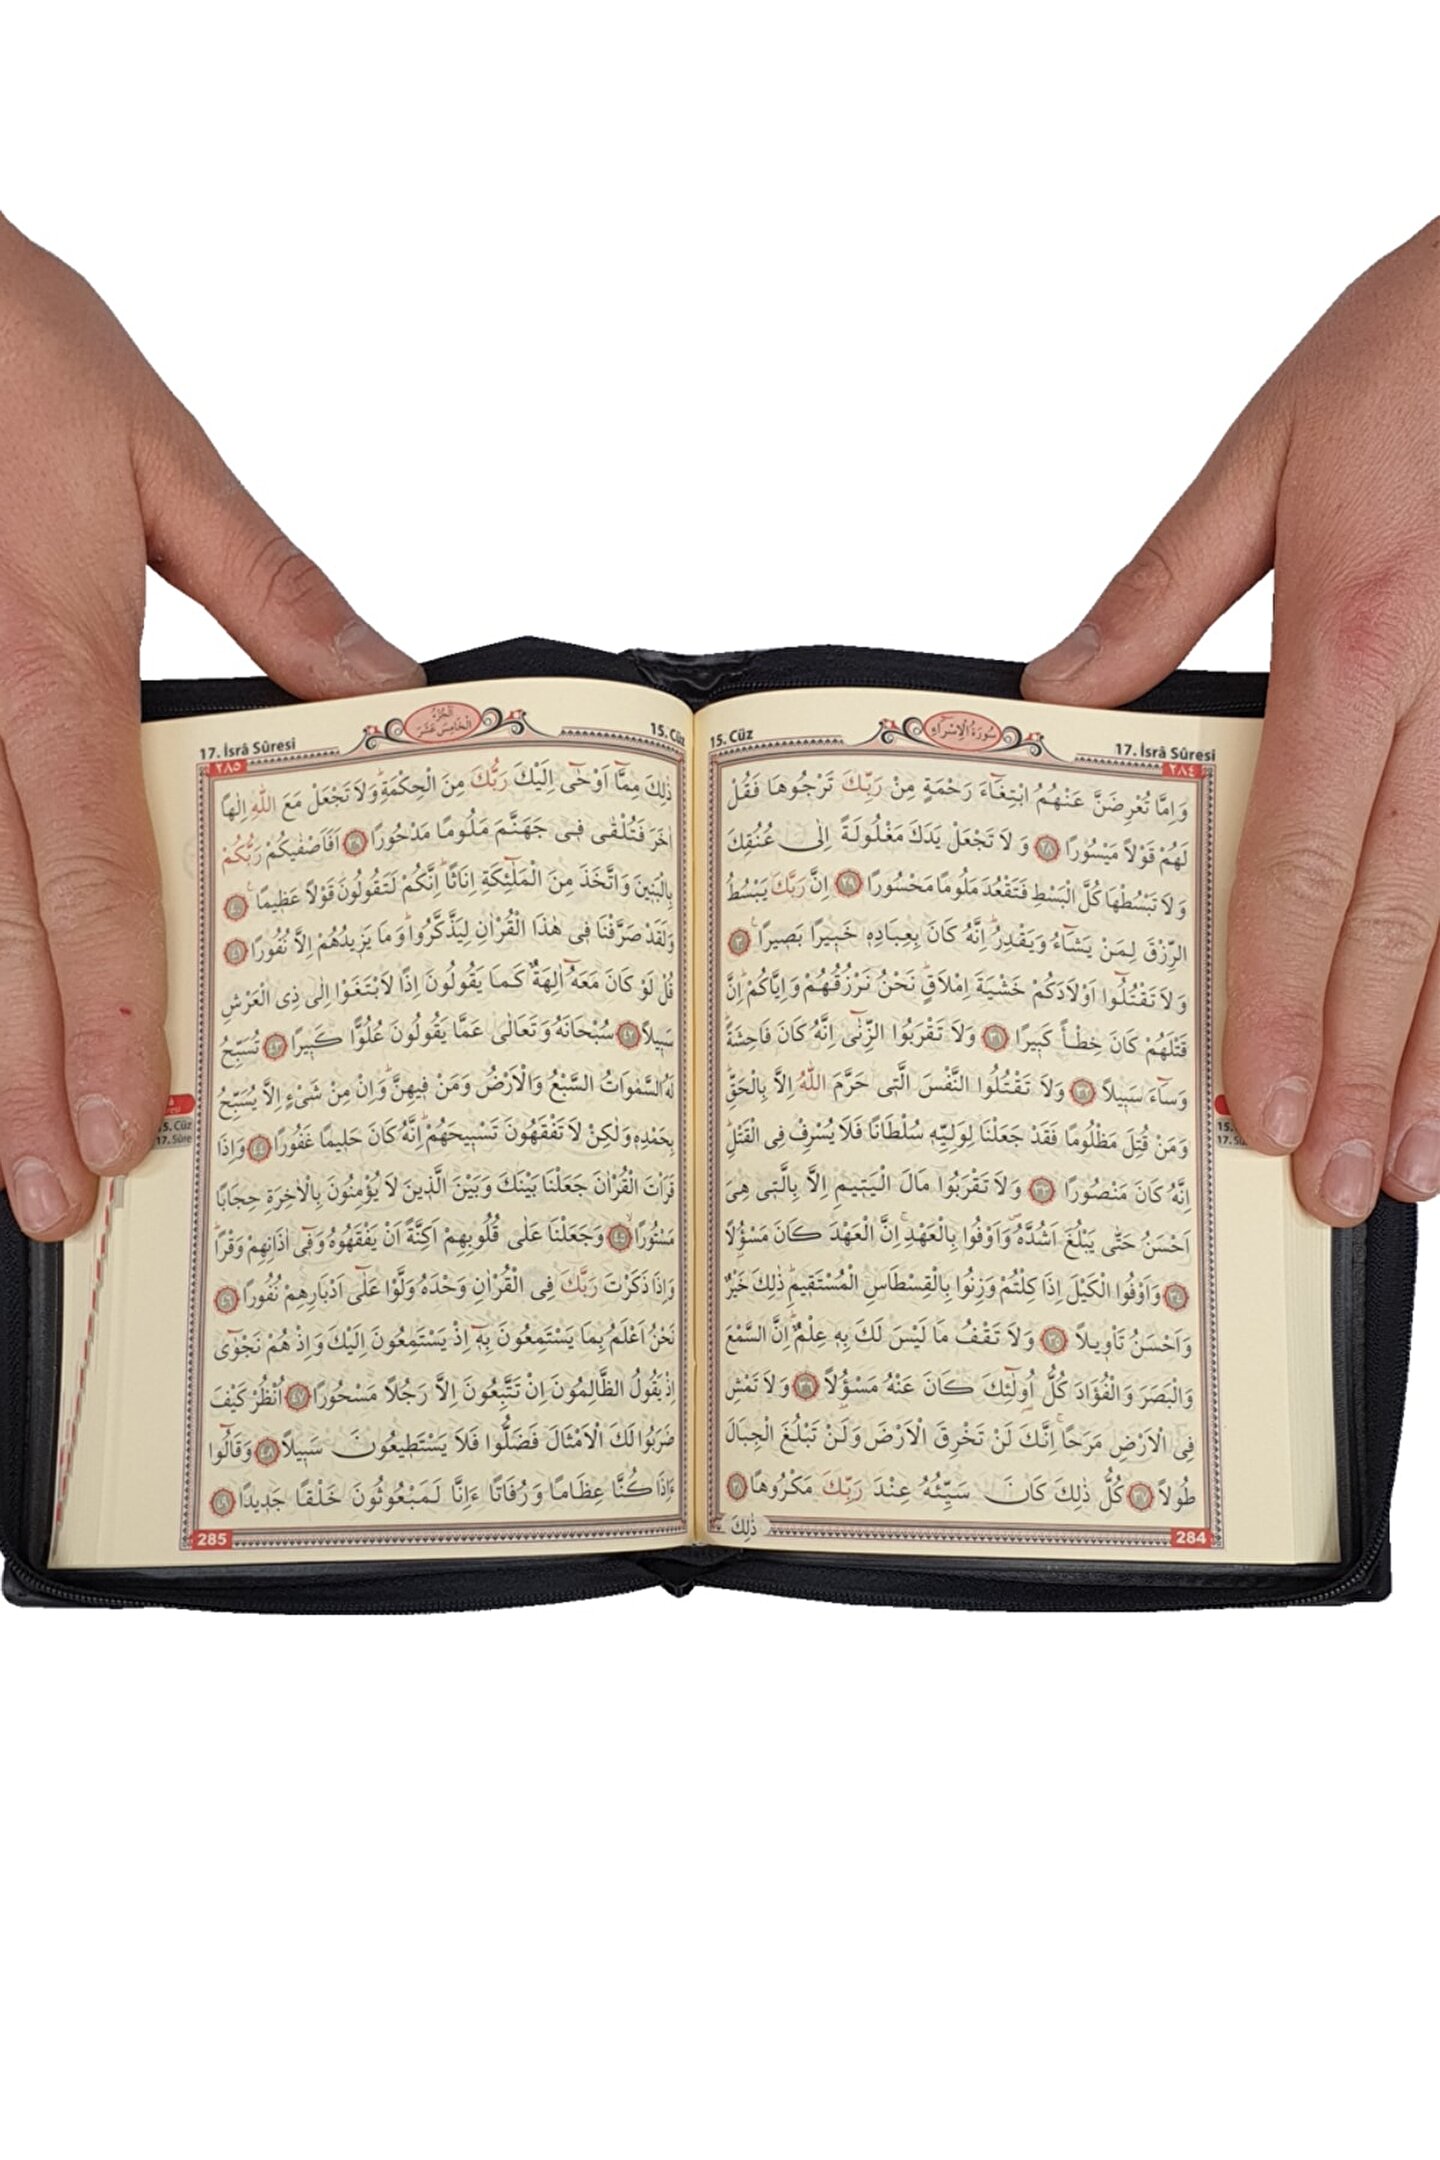 15. Cüz
سُورَةُ الْاِسْرَاءِ
17. İsrâ Sûresi
٢٨٤
وَاِمَّا تُعْرِضَنَّ عَنْهُمُ ابْتِغَٓاءَ رَحْمَةٍ مِنْ رَبِّكَ تَرْجُوهَا فَقُلْ
لَهُمْ قَوْلاً مَيْسُورًا ﴿٢٨﴾ وَلَا تَجْعَلْ يَدَكَ مَغْلُولَةً اِلٰى عُنُقِكَ
وَلَا تَبْسُطْهَا كُلَّ الْبَسْطِ فَتَقْعُدَ مَلُومًا مَحْسُورًا ﴿٢٩﴾ اِنَّ رَبَّكَ يَبْسُطُ
الرِّزْقَ لِمَنْ يَشَٓاءُ وَيَقْدِرُ اِنَّهُ كَانَ بِعِبَادِه۪ خَب۪يرًا بَص۪يرًا ﴿٣٠﴾
وَلَا تَقْتُلُٓوا اَوْلَادَكُمْ خَشْيَةَ اِمْلَاقٍ نَحْنُ نَرْزُقُهُمْ وَاِيَّاكُمْ اِنَّ
قَتْلَهُمْ كَانَ خِطْـًٔا كَب۪يرًا ﴿٣١﴾ وَلَا تَقْرَبُوا الزِّنٰٓى اِنَّهُ كَانَ فَاحِشَةً
وَسَٓاءَ سَب۪يلاً ﴿٣٢﴾ وَلَا تَقْتُلُوا النَّفْسَ الَّت۪ي حَرَّمَ اللّٰهُ اِلَّا بِالْحَقِّ
وَمَنْ قُتِلَ مَظْلُومًا فَقَدْ جَعَلْنَا لِوَلِيِّه۪ سُلْطَانًا فَلَا يُسْرِفْ فِي الْقَتْلِ
اِنَّهُ كَانَ مَنْصُورًا ﴿٣٣﴾ وَلَا تَقْرَبُوا مَالَ الْيَت۪يمِ اِلَّا بِالَّت۪ي هِيَ
اَحْسَنُ حَتّٰى يَبْلُغَ اَشُدَّهُ وَاَوْفُوا بِالْعَهْدِ اِنَّ الْعَهْدَ كَانَ مَسْؤُ۫لاً
﴿٣٤﴾ وَاَوْفُوا الْكَيْلَ اِذَا كِلْتُمْ وَزِنُوا بِالْقِسْطَاسِ الْمُسْتَق۪يمِ ذٰلِكَ خَيْرٌ
وَاَحْسَنُ تَأْو۪يلاً ﴿٣٥﴾ وَلَا تَقْفُ مَا لَيْسَ لَكَ بِه۪ عِلْمٌ اِنَّ السَّمْعَ
وَالْبَصَرَ وَالْفُؤٰادَ كُلُّ اُو۬لٰٓئِكَ كَانَ عَنْهُ مَسْؤُ۫لاً ﴿٣٦﴾ وَلَا تَمْشِ
فِي الْاَرْضِ مَرَحًا اِنَّكَ لَنْ تَخْرِقَ الْاَرْضَ وَلَنْ تَبْلُغَ الْجِبَالَ
طُولاً ﴿٣٧﴾ كُلُّ ذٰلِكَ كَانَ سَيِّئُهُ عِنْدَ رَبِّكَ مَكْرُوهًا ﴿٣٨﴾
ذٰلِكَ
284
17. İsrâ Sûresi
اَلْجُزْءُ
الْخَامِسَ عَشَرَ
15. Cüz
٢٨٥
ذٰلِكَ مِمَّٓا اَوْحٰٓى اِلَيْكَ رَبُّكَ مِنَ الْحِكْمَةِ وَلَا تَجْعَلْ مَعَ اللّٰهِ اِلٰهًا
اٰخَرَ فَتُلْقٰى ف۪ي جَهَنَّمَ مَلُومًا مَدْحُورًا ﴿٣٩﴾ اَفَاَصْفٰيكُمْ رَبُّكُمْ
بِالْبَن۪ينَ وَاتَّخَذَ مِنَ الْمَلٰٓئِكَةِ اِنَاثًا اِنَّكُمْ لَتَقُولُونَ قَوْلاً عَظ۪يمًا ﴿٤٠﴾
وَلَقَدْ صَرَّفْنَا ف۪ي هٰذَا الْقُرْاٰنِ لِيَذَّكَّرُوا وَمَا يَز۪يدُهُمْ اِلَّا نُفُورًا ﴿٤١﴾
قُلْ لَوْ كَانَ مَعَهُٓ اٰلِهَةٌ كَمَا يَقُولُونَ اِذًا لَابْتَغَوْا اِلٰى ذِي الْعَرْشِ
سَب۪يلاً ﴿٤٢﴾ سُبْحَانَهُ وَتَعَالٰى عَمَّا يَقُولُونَ عُلُوًّا كَب۪يرًا ﴿٤٣﴾ تُسَبِّحُ
لَهُ السَّمٰوَاتُ السَّبْعُ وَالْاَرْضُ وَمَنْ ف۪يهِنَّ وَاِنْ مِنْ شَيْءٍ اِلَّا يُسَبِّحُ
بِحَمْدِه۪ وَلٰكِنْ لَا تَفْقَهُونَ تَسْب۪يحَهُمْ اِنَّهُ كَانَ حَل۪يمًا غَفُورًا ﴿٤٤﴾ وَاِذَا
قَرَأْتَ الْقُرْاٰنَ جَعَلْنَا بَيْنَكَ وَبَيْنَ الَّذ۪ينَ لَا يُؤْمِنُونَ بِالْاٰخِرَةِ حِجَابًا
مَسْتُورًا ﴿٤٥﴾ وَجَعَلْنَا عَلٰى قُلُوبِهِمْ اَكِنَّةً اَنْ يَفْقَهُوهُ وَف۪ٓي اٰذَانِهِمْ وَقْرًا
وَاِذَا ذَكَرْتَ رَبَّكَ فِي الْقُرْاٰنِ وَحْدَهُ وَلَّوْا عَلٰٓى اَدْبَارِهِمْ نُفُورًا ﴿٤٦﴾
نَحْنُ اَعْلَمُ بِمَا يَسْتَمِعُونَ بِه۪ٓ اِذْ يَسْتَمِعُونَ اِلَيْكَ وَاِذْ هُمْ نَجْوٰٓى
اِذْ يَقُولُ الظَّالِمُونَ اِنْ تَتَّبِعُونَ اِلَّا رَجُلاً مَسْحُورًا ﴿٤٧﴾ اُنْظُرْ كَيْفَ
ضَرَبُوا لَكَ الْاَمْثَالَ فَضَلُّوا فَلَا يَسْتَط۪يعُونَ سَب۪يلاً ﴿٤٨﴾ وَقَالُٓوا
ءَاِذَا كُنَّا عِظَامًا وَرُفَاتًا ءَاِنَّا لَمَبْعُوثُونَ خَلْقًا جَد۪يدًا ﴿٤٩﴾
285